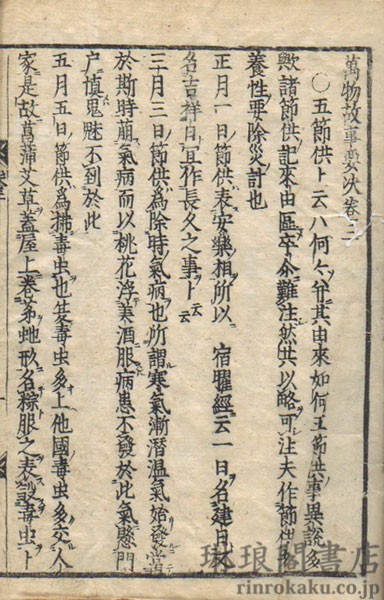 萬物故事要决卷二
〇五節供ト云ハ何々ソ并其由來如何五節供ノ事異説多
歟諸節供記來由區卒尒難注然共以略可注夫作節供
養性要除災計也
正月一日ノ節供ハ表安樂相所以　宿曜經云一日名建日又
名吉祥日宜作長久之事ト云云
三月三日ノ節供ハ為除時氣病也所謂寒氣漸潛温氣始發當
於斯時崩氣病而以桃花浮美酒服病患不發於此氣懸門
户慎鬼魅不到於此
五月五日ノ節供ハ為拂毒虫也夏毒虫多上他國毒虫多交人
家是故菖蒲艾草蓋屋上卷茅虵形名粽服之表殺毒虫ト
琳琅閣書店
rinrokaku.co.jp